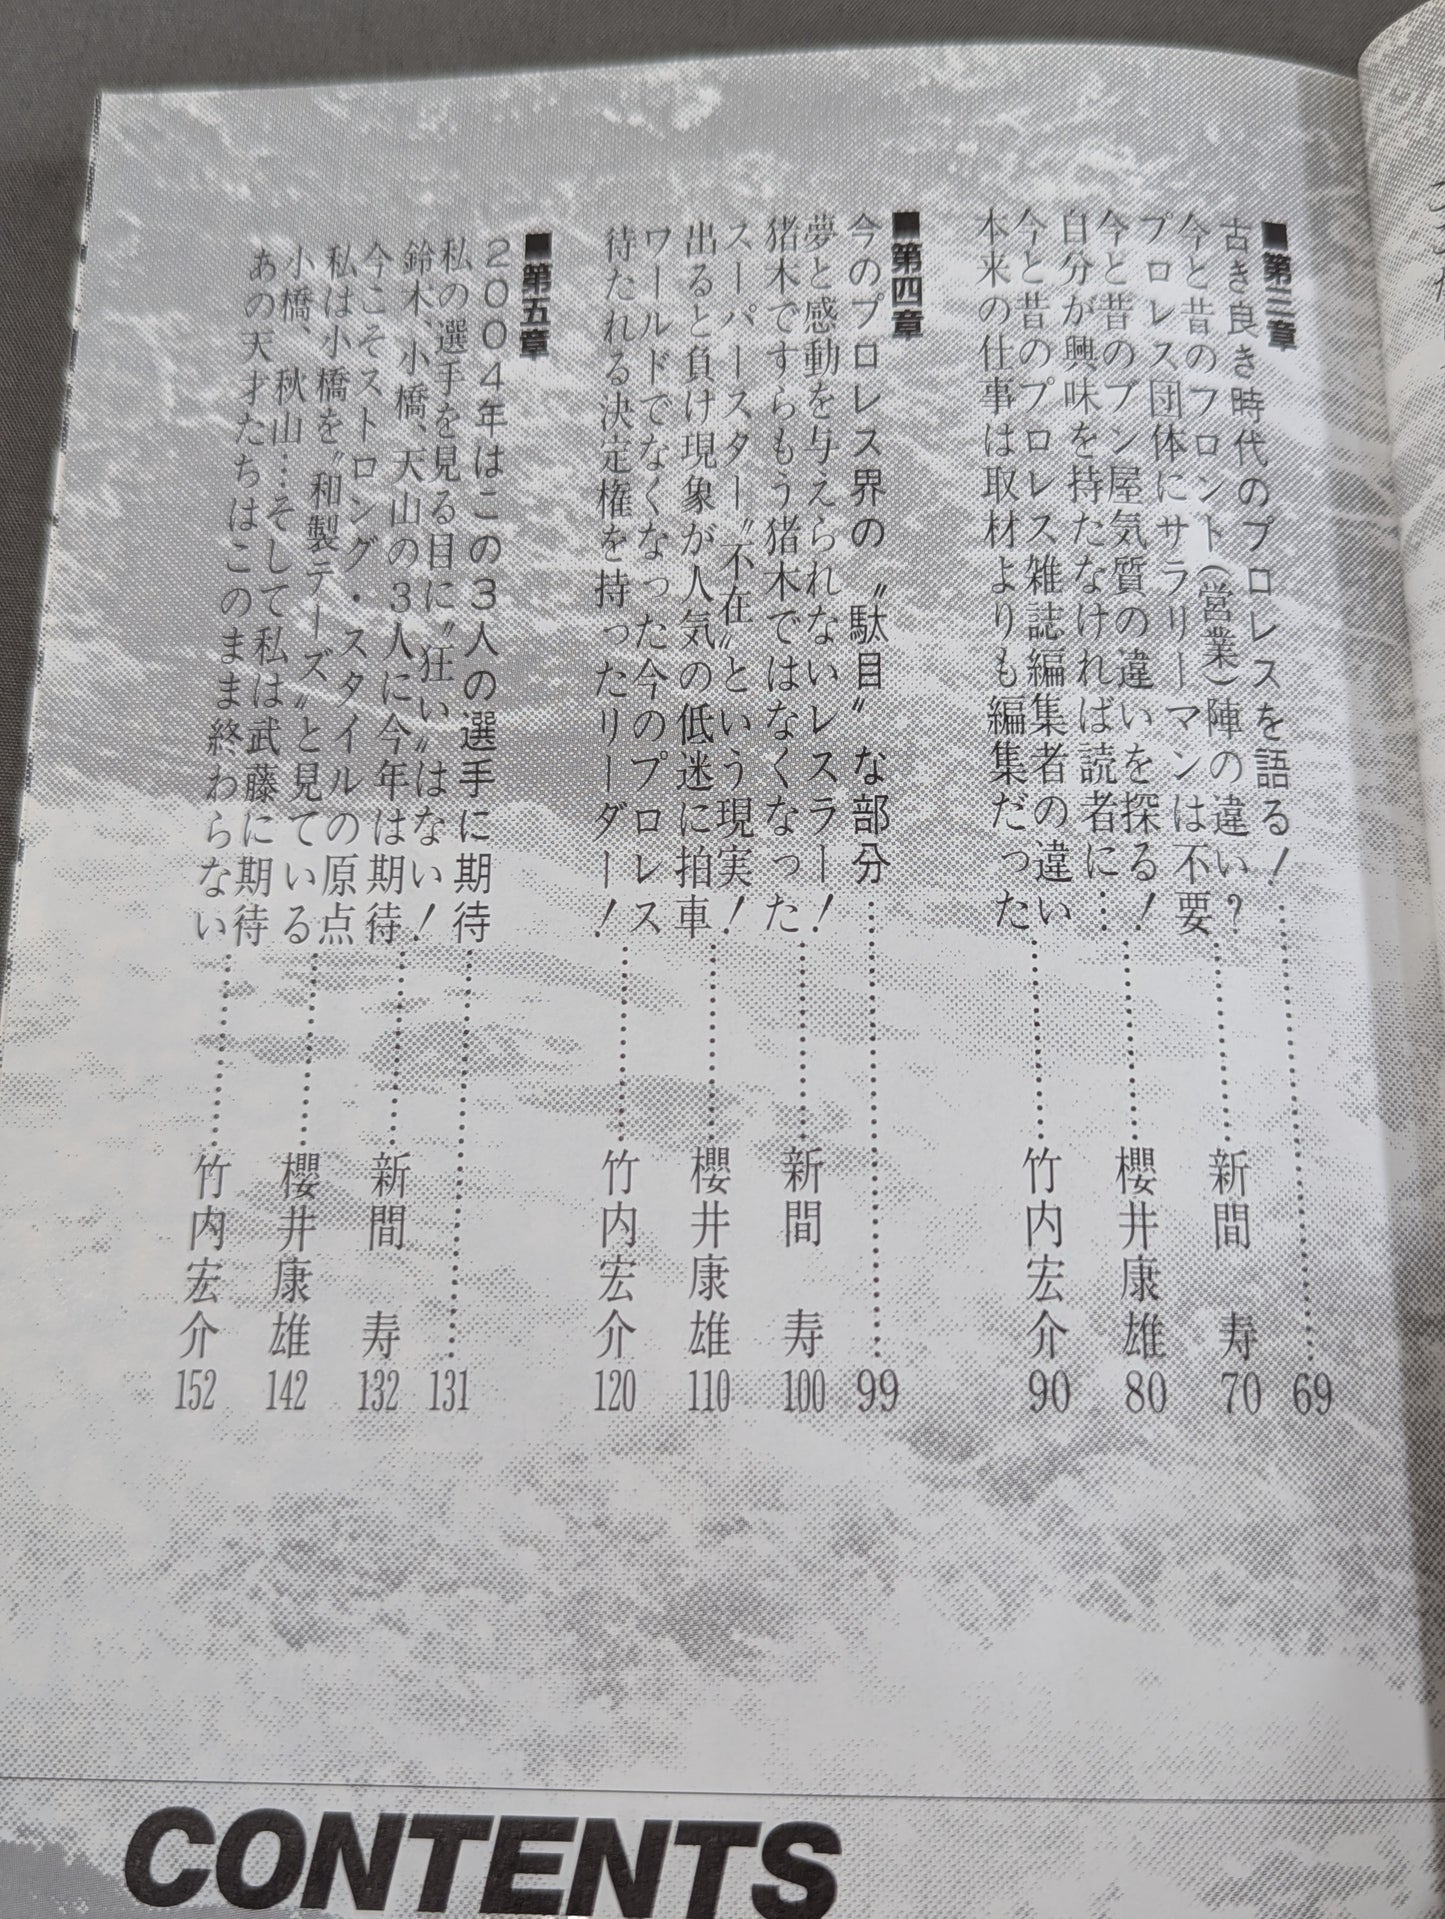 ■第三章
古き良き時代のプロレスを語る!……69
今と昔のフロント(営業)陣の違い?
プロレス団体にサラリーマンは不要……新間 寿 70
今と昔のブン屋気質の違いを探る!
自分が興味を持たなければ読者に………櫻井康雄 80
今と昔のプロレス雑誌編集者の違い
本来の仕事は取材よりも編集だった……竹内宏介 90
■第四章
今のプロレス界の〝駄目〟な部分……99
夢と感動を与えられないレスラー!
猪木ですらもう猪木ではなくなった……新間 寿 100
スーパースター〝不在〟という現実!
出ると負け現象が人気の低迷に拍車……櫻井康雄 110
ワールドでなくなった今のプロレス
待たれる決定権を持ったリーダー!……竹内宏介 120
■第五章
2004年はこの3人の選手に期待……131
私の選手を見る目に〝狂い〟はない!
鈴木、小橋、天山の3人に今年は期待……新間 寿 132
今こそストロング・スタイルの原点
私は小橋を〝和製テーズ〟と見ている……櫻井康雄 142
小橋、秋山…そして私は武藤に期待
あの天才たちはこのまま終わらない……竹内宏介 152
CONTENTS